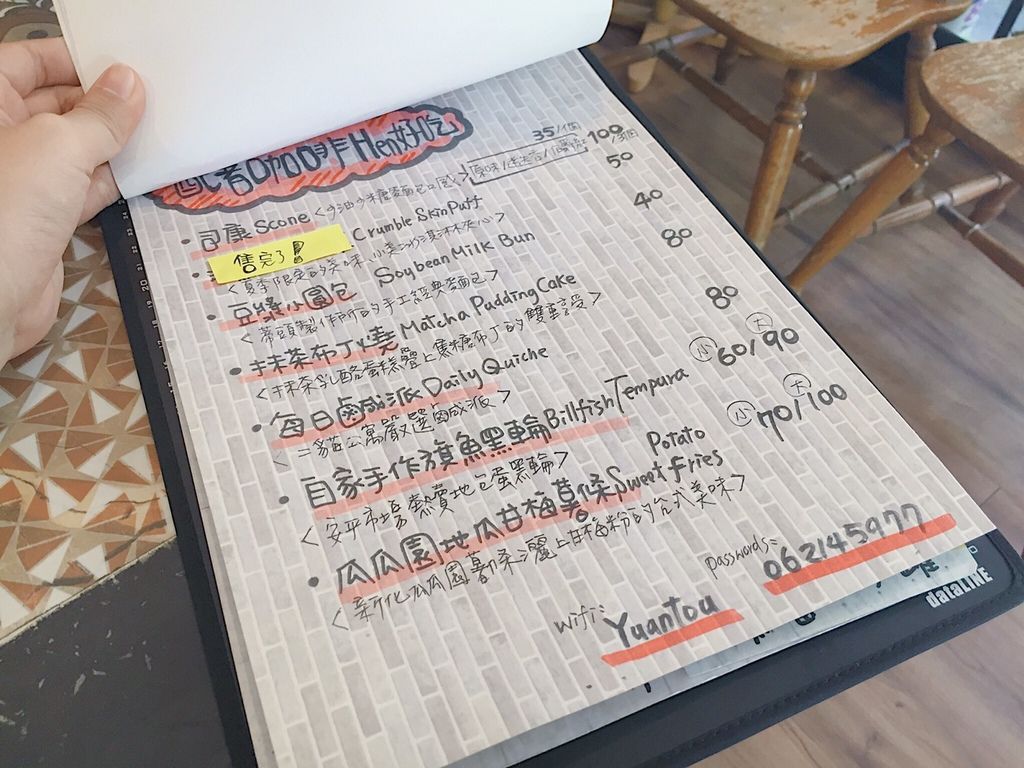 配著咖啡Hen好吃
• 司康 Scone <少油少糖麵包口感> 35/1個 100/3個
售完了! Crumble Skin Puff 50
<夏季限定的美味
• 豆漿小圓包 Soybean Milk Bun 40
製作的手工經典麵包>
• 抹茶布丁燒 Matcha Pudding Cake 80
<抹茶乳酪蛋糕疊上焦糖布丁的雙重享受>
• 每日鹹派 Daily Quiche 80
<二貓公寓嚴選鹹派>
• 自家手作旗魚黑輪 Billfish Tempura 小60/大90
<安平市場熱賣地包蛋黑輪>
• 瓜瓜園地瓜甘梅薯條 Sweet Potato Fries 小70/大100
<新化瓜瓜園薯條灑上甘梅粉的台式美味>
wifi: Yuantou
passwords: 062145977
dataLINE